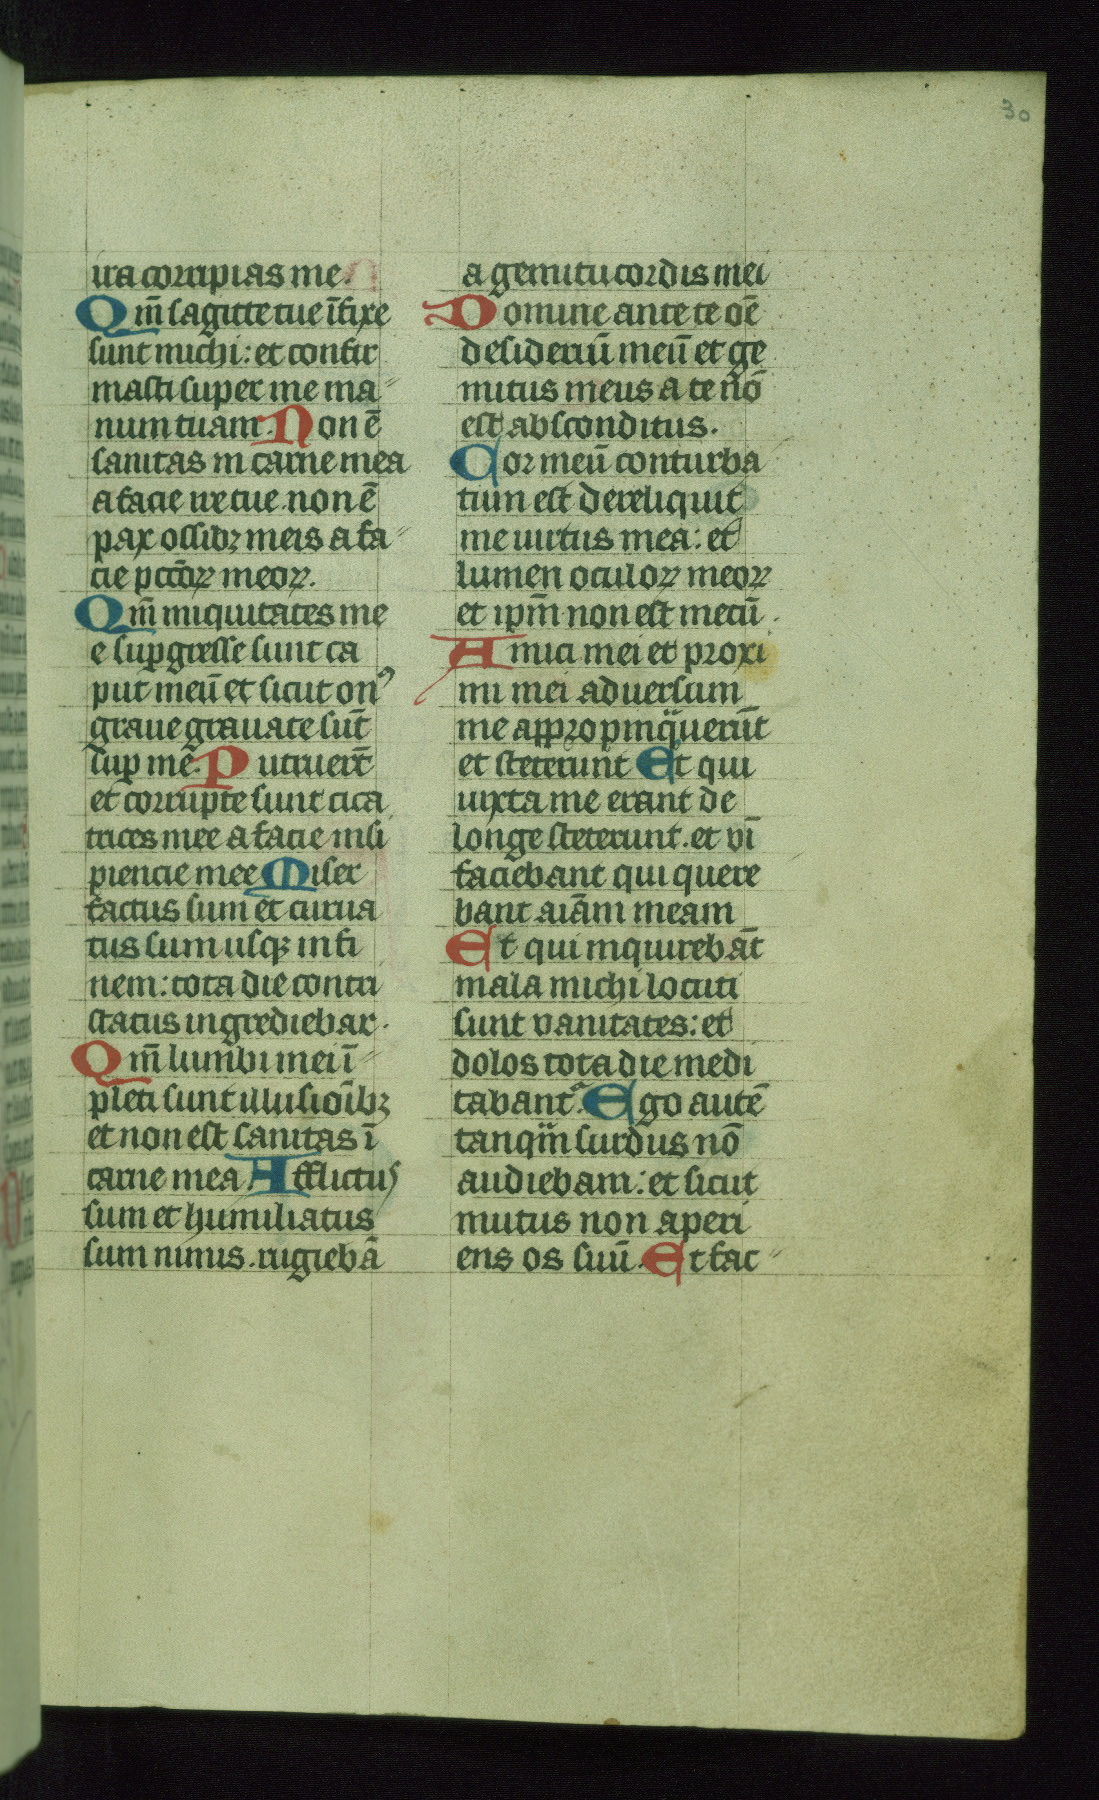 30
ira corripias me.
Qm̄ sagitte tue īfixe
sunt michi: et confir
masti super me ma
num tuam. Non ē
sanitas in carne mea
a facie ire tue. non ē
pax ossibꝫ meis a fa
cie pcc̄oꝝ meoꝝ.
Qm̄ iniquitates me
e suꝑgresse sunt ca
put meū et sicut onꝰ
graue grauate sūt
suꝑ me. Putruerūt
et corrupte sunt cica
trices mee a facie insi
piencie mee Miser
factus sum et curua
tus sum usqꝫ in fi
nem: tota die contri
status ingrediebar.
Qm̄ lumbi mei ī
pleti sunt illusiōibꝫ
et non est sanitas ī
carne mea Afflictus
sum et humiliatus
sum nimis. rugiebā
a gemitu cordis mei
Domine ante te oē
desideriū meū et ge
mitus meus a te nō
est absconditus.
Cor meū conturba
tum est dereliquit
me uirtus mea: et
lumen oculoꝝ meoꝝ
et ipm̄ non est mecū.
Amici mei et proxi
mi mei aduersum
me appropinquauerūt
et steterunt Et qui
iuxta me erant de
longe steterunt. et vī
faciebant qui quere
bant aīam meam
Et qui inquirebāt
mala michi locuti
sunt vanitates: et
dolos tota die medi
tabantᷣ. Ego autē
tanqm̄ surdus nō
audiebam: et sicut
mutus non aperi
ens os suū. Et fac